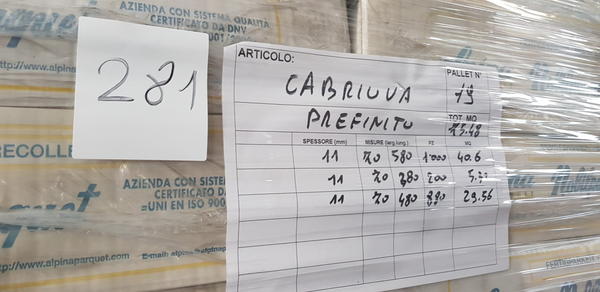 AZIENDA CON SISTEMA QUALITÀ
CERTIFICATO DA DNV
http://www.alpina
281
ARTICOLO:
CABRIUVA
PREFINITO
PALLET N°
19
TOT. MQ
75.48
SPESSORE (mm) MISURE (larg.lung.) PZ MQ
11 70 580 1000 40.6
11 70 380 200 5.32
11 70 480 880 29.56
RECOLLE
AZIENDA CON SISTE
CERTIFICATO DA
=UNI EN ISO 900
www.alpinaparquet.com
E-mail:
http://www.alpinaparquet.com